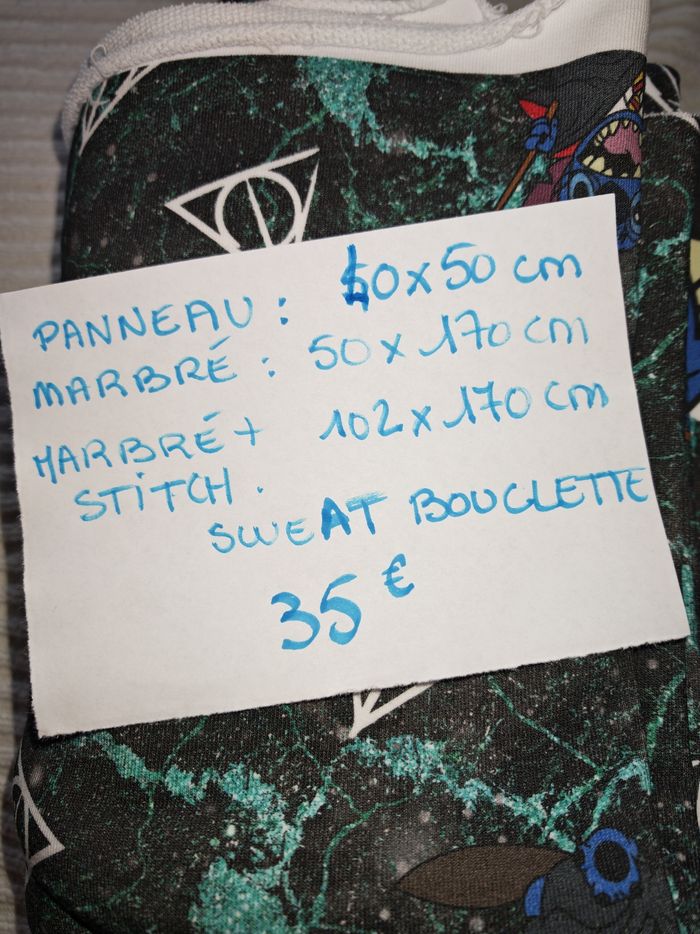 PANNEAU : cm
MARBRÉ : 50 x 170 cm
MARBRÉ + 102 x 170 cm
STITCH.
SWEAT BOUCLETTE
35 €